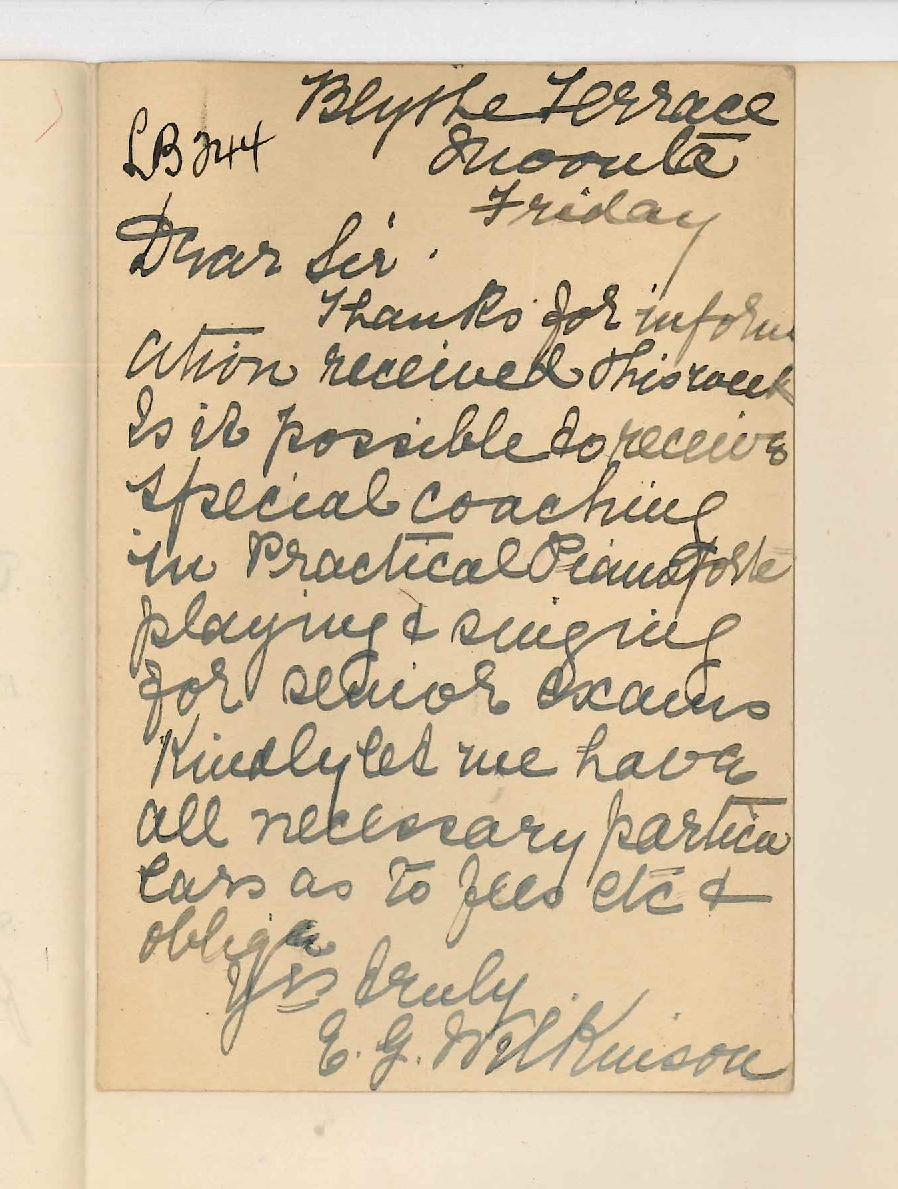 Blythe Terrace
LB 244
Moonta
Friday
Dear Sir.
Thanks for inform
ation received this week
Is it possible to receive
special coaching
in Practical Pianoforte
playing & singing
for senior exams
Kindly let me have
all necessary particu
lars as to fees etc &
oblige
Yrs truly
E. G. Wilkinson